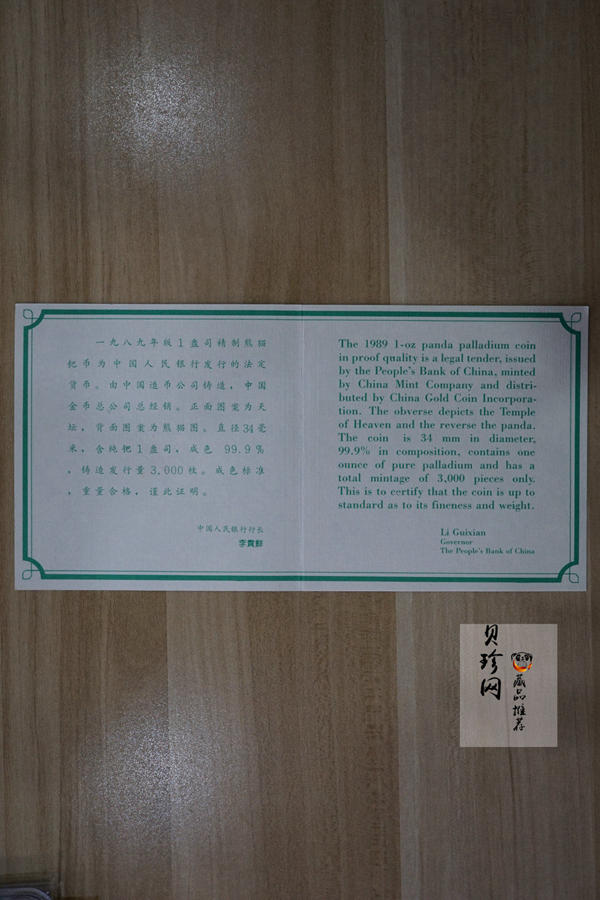 一九八九年版1盎司精制熊猫
钯币为中国人民银行发行的法定
货币。由中国造币公司铸造，中国
金币总公司总经销。正面图案为天
坛，背面图案为熊猫图。直径34毫
米，含纯钯1盎司，成色 99.9%
，铸造发行量3,000枚。成色标准
，重量合格，谨此证明。
中国人民银行行长
李貴鮮
The 1989 1-oz panda palladium coin
in proof quality is a legal tender, issued
by the People's Bank of China, minted
by China Mint Company and distri-
buted by China Gold Coin Incorpora-
tion. The obverse depicts the Temple
of Heaven and the reverse the panda.
The coin is 34 mm in diameter,
99.9% in composition, contains one
ounce of pure palladium and has a
total mintage of 3,000 pieces only.
This is to certify that the coin is up to
standard as to its fineness and weight.
Li Guixian
Governor
The People's Bank of China
贝珍网
藏品推荐